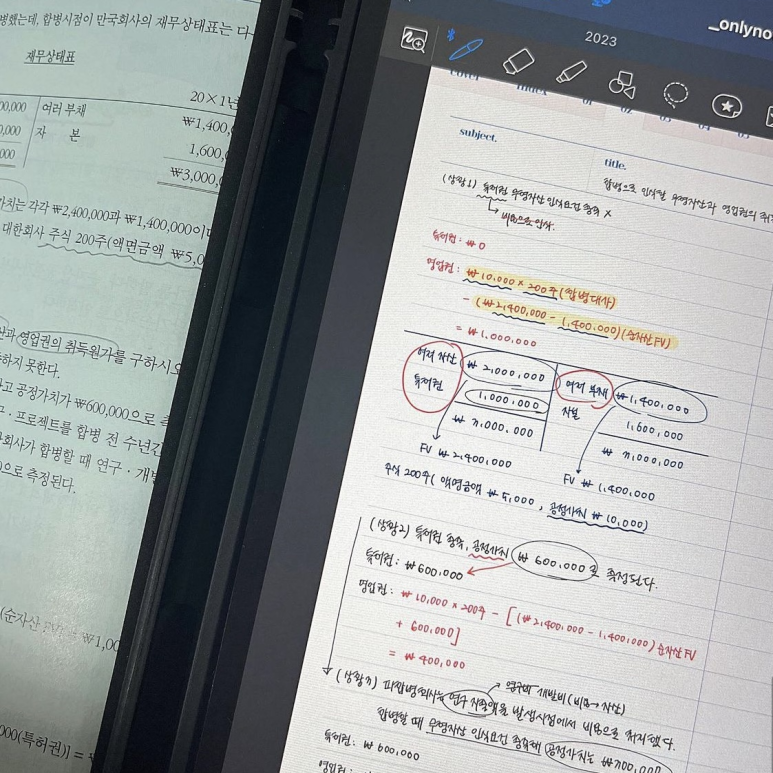 병했는데, 합병시점이 만국회사의 재무상태표는 다
재무상태표
20×1년
00,000 여러부채 ₩1,400,
0,000 자 본 1,600,
000 ₩3,000,
가치는 각각 ₩2,400,000과 ₩1,400,000이
대한회사 주식 200주(액면금액 ₩5,0
영업권의 취득원가를 구하시오
하지 못한다.
고 공정가치가 ₩600,000으로 측
프로젝트를 합병 전 수년간
회사가 합병할 때 연구·개발
으로 측정된다.
(순자산 ₩1,00
000(특허권)] =
2023
_onlyno
cover index 01 02 03 04 05
subject.
title.
합병으로 인식할 무형자산과 영업권의 취
(상황1) 특허권 무형자산 인식요건 충족 ×
→ 비용으로 인식.
특허권: ₩0
영업권: ₩10,000 × 200주 (합병대가)
- (₩2,400,000 - 1,400,000) (순자산FV)
= ₩1,000,000
여러 자산 ₩2,000,000 여러 부채 ₩1,400,000
특허권 1,000,000 자본 1,600,000
₩3,000,000 ₩3,000,000
FV ₩2,400,000 FV ₩1,400,000
주식 200주 (액면금액 ₩5,000, 공정가치 ₩10,000)
(상황2) 특허권 충족, 공정가치 ₩600,000로 측정된다.
특허권: ₩600,000
영업권: ₩10,000 × 200주 - [(₩2,400,000 - 1,400,000) 순자산FV
+ 600,000]
= ₩400,000
→ 연구비 개발비 (비용→자산)
(상황3) 피합병회사는 연구 지출액을 발생시점에서 비용으로 처리했다.
합병할 때 무형자산 인식요건 충족해 공정가치는 ₩300,000
특허권: ₩600,000
영업권: